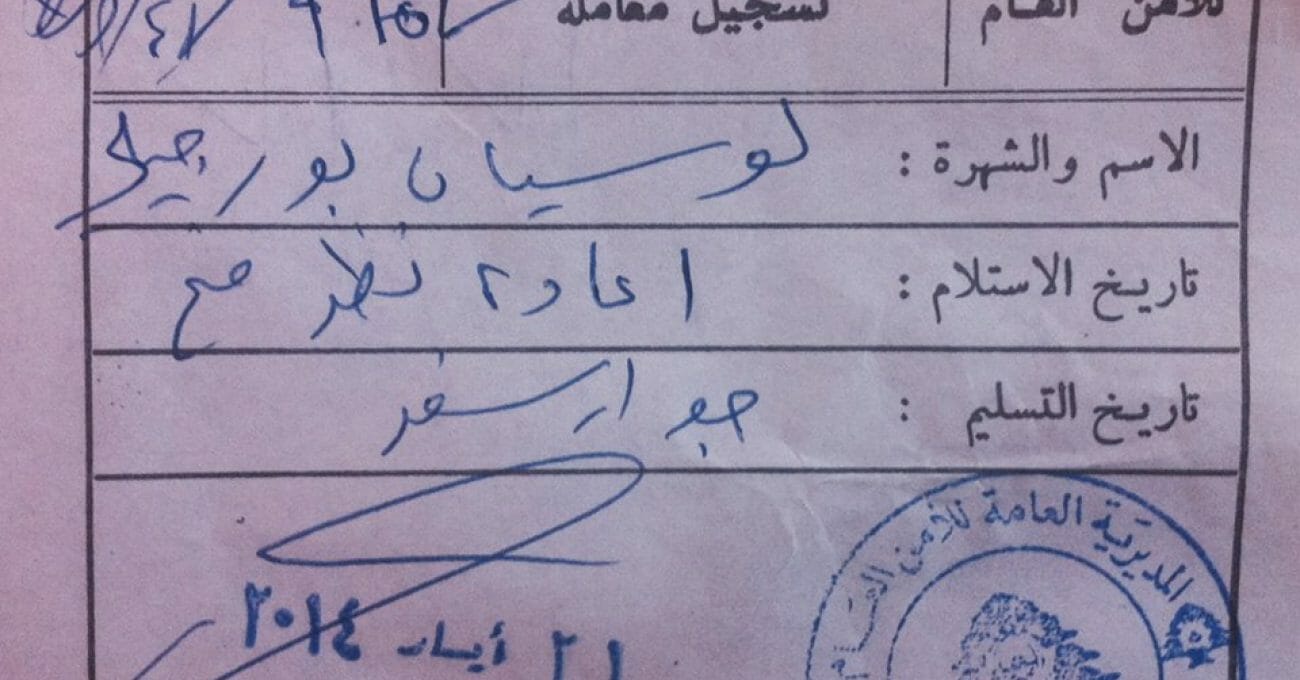 للأمن العام تسجيل معاملة
الاسم والشهرة : لوسيان بورجيلي
تاريخ الاستلام : اعادة نظر مع
تاريخ التسليم : جواز سفر
المديرية العامة للأمن العام
٢١ أيار ٢٠١٤